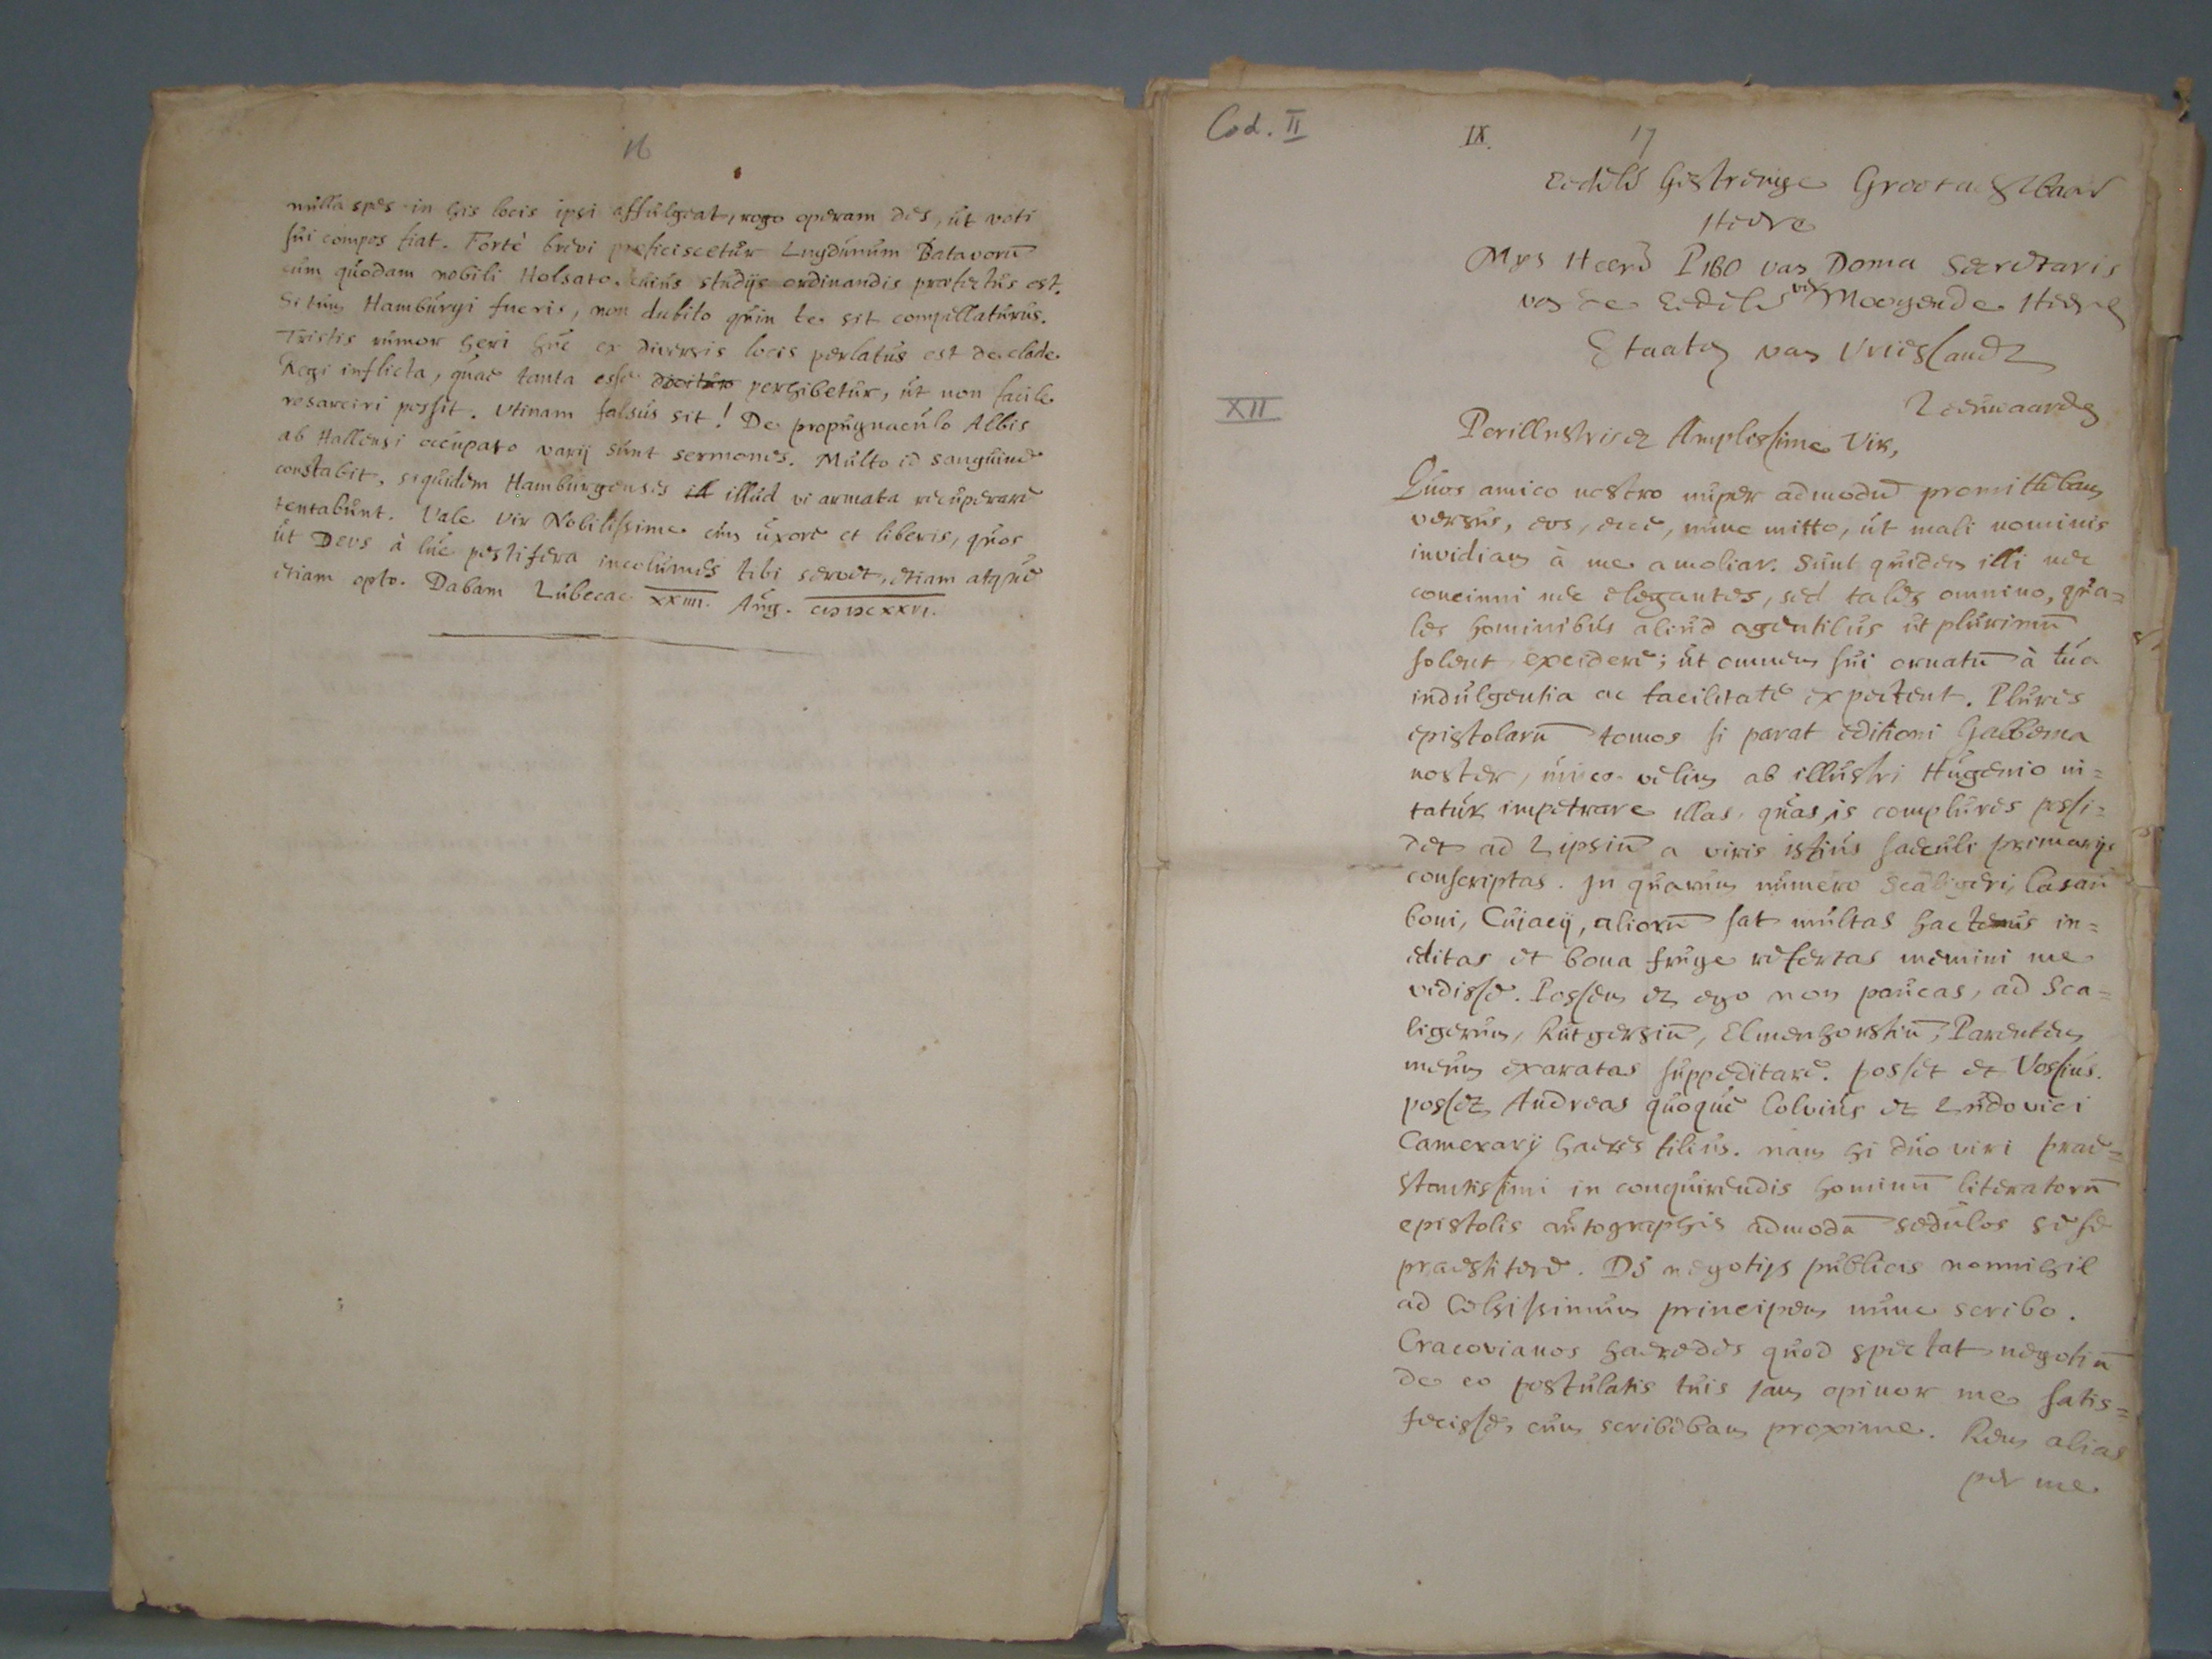 16
nulla spes in his locis ipsi affulgeat, rogo operam des, ut voti
sui compos fiat. Fortè brevi proficiscetur Lugdunum Batavorū
cum quodam nobili Holsato, cuius studijs ordinandis praefectus est.
Si tum Hamburgi fueris, non dubito quin te sit compellaturus.
Tristis rumor heri huc ex diversis locis perlatus est de clade
Regi inflicta, quae tanta esse dicitur perhibetur, ut non facile
resarciri possit. Utinam falsus sit! De propugnaculo Albis
ab Hallensi occupato varij sunt sermones. Multo id sanguine
constabit, siquidem Hamburgenses ill illud vi armata recuperare
tentabunt. Vale Vir Nobilissime cum uxore et liberis, quos
ut Deus à lue pestifera incolumes tibi servet, etiam atque
etiam opto. Dabam Lubecae XXIIII. Aug. CIƆ IƆC XXVI.
Cod. II
IX. 17
Eedele Gestrenge Groot Achtbaar
Heere
Myn Heere PIBO van Doma Secretaris
van de Eedele Moogende Heeren
Staaten van Vrieslandt
Leeuwaarden
XII
Perillustris et Amplissime Vir,
Quos amico nostro nuper admodū promittebam
versus, eos, ecce, nunc mitto, ut mali nominis
invidiam à me amoliar. Sunt quidem illi nec
concinni nec elegantes, sed tales omnino, qua=
les hominibus aliud agentibus ut plurimū
solent excidere; ut omnem sui ornatū à tua
indulgentia ac facilitate expectent. Plures
epistolarū tomos si parat editioni Gabbema
noster, unice velim ab illustri Hugenio ni=
tatur impetrare illas, quas is complures possi=
det ad Lipsiū a viris istius saeculi primarijs
conscriptas. In quarum numero Scaligeri, Casau
boni, Cujacij, aliorū sat multas hactenus in=
editas et bona fruge refertas memini me
vidisse. Possem et ego non paucas, ad Sca=
ligerum, Rutgersiū, Elmenhorstiū, Parentem
meum exaratas suppeditare. posset et Vossius.
posset Andreas quoque Colvius et Ludovici
Camerarij haeres filius. nam hi duo viri prae=
stantissimi in conquirendis hominū literatorū
epistolis autographis admodū sedulos sese
praestitere. De negotijs publicis nonnihil
ad Celsissimum principem nunc scribo.
Cracovianos haeredes quod spectat negotiū
de eo postulatis tuis jam opinor me satis=
fecisse, cum scribebam proxime. Rem alias
per me